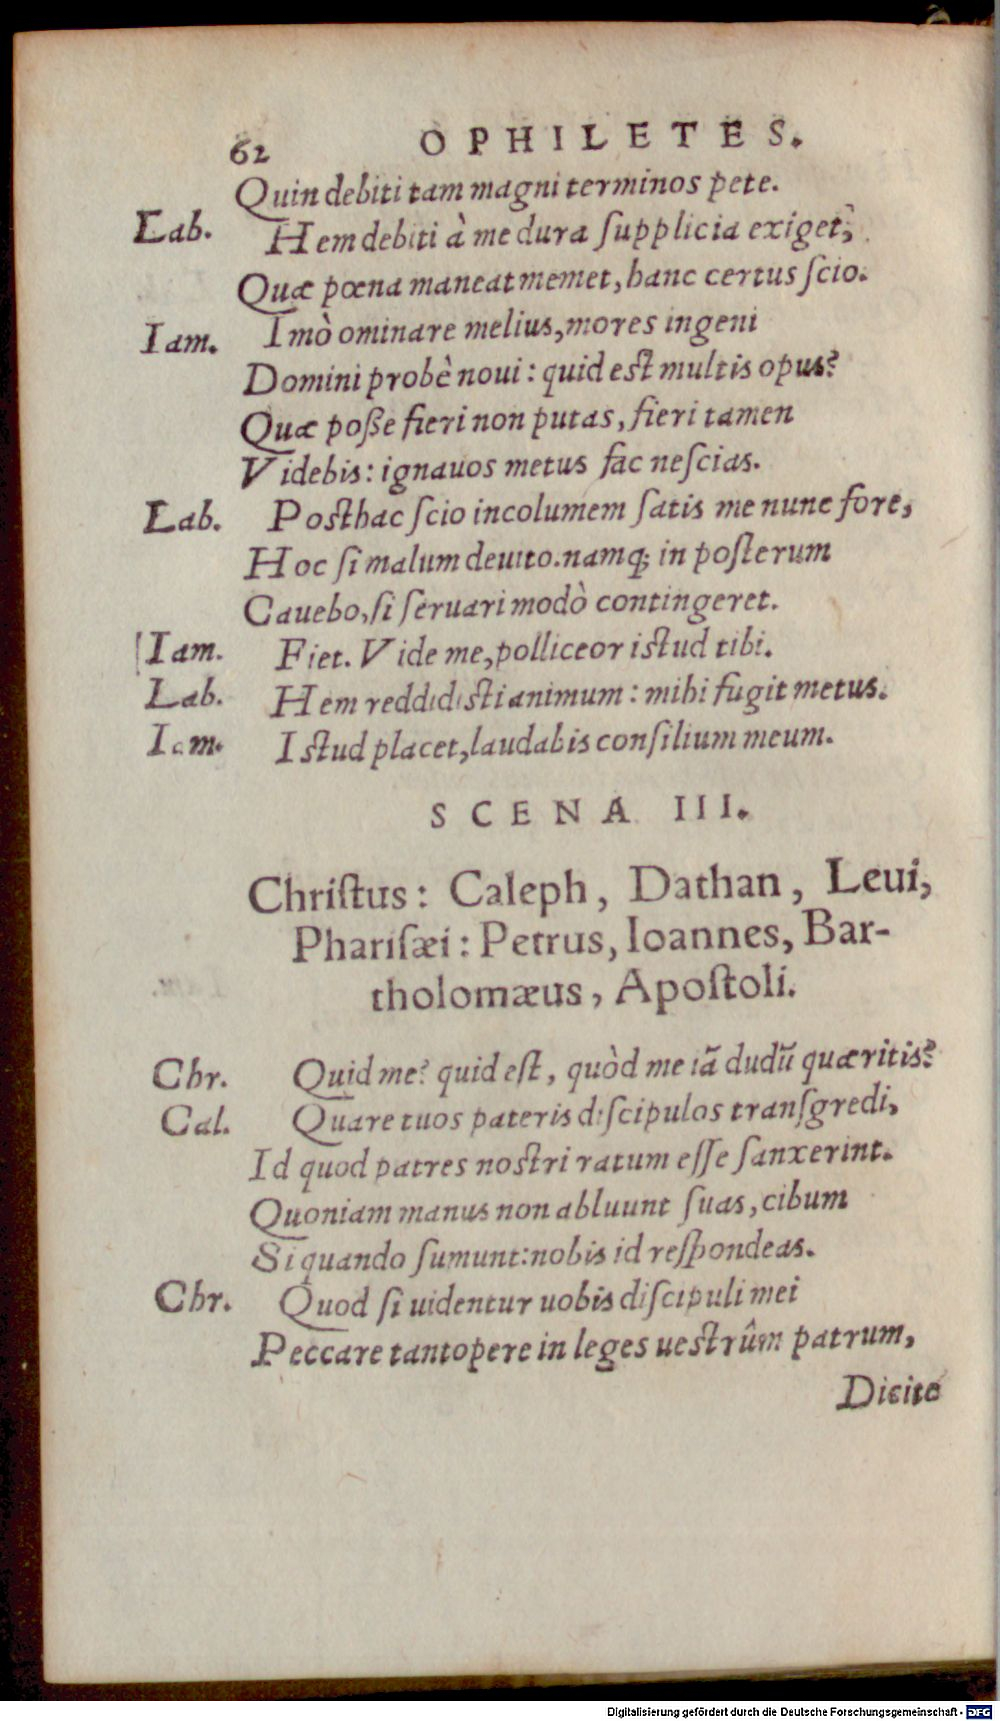 62 OPHILETES.
Quin debiti tam magni terminos pete.
Lab. Hem debiti à me dura ſupplicia exiget,
Quæ pœna maneat memet, hanc certus ſcio.
Iam. Imò ominare melius, mores ingeni
Domini probè noui: quid est multis opus?
Quæ poße fieri non putas, fieri tamen
Videbis: ignauos metus fac neſcias.
Lab. Posthac ſcio incolumem ſatis me nunc fore,
Hoc ſi malum deuito. namq; in poſterum
Cauebo, ſi ſeruari modò contingeret.
Iam. Fiet. Vide me, polliceor istud tibi.
Lab. Hem reddidisti animum: mihi fugit metus.
Iam. Istud placet, laudabis conſilium meum.
SCENA III.
Chriſtus: Caleph, Dathan, Leui,
Phariſæi: Petrus, Ioannes, Bar-
tholomæus, Apoſtoli.
Chr. Quid me? quid eſt, quòd me iã dudũ quæritis?
Cal. Quare tuos pateris diſcipulos tranſgredi,
Id quod patres nostri ratum eſſe ſanxerint.
Quoniam manus non abluunt ſuas, cibum
Si quando ſumunt: nobis id reſpondeas.
Chr. Quod ſi uidentur uobis diſcipuli mei
Peccare tantopere in leges uestrûm patrum,
Dicite
Digitalisierung gefördert durch die Deutsche Forschungsgemeinschaft - DFG